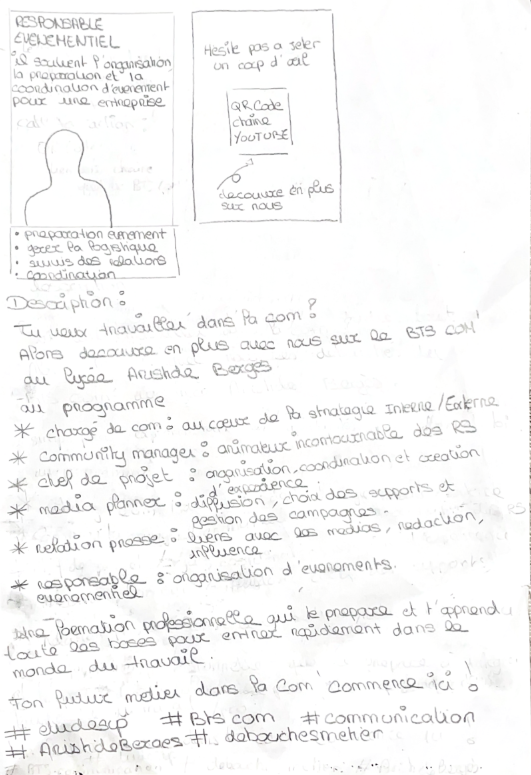 RESPONSABLE
EVENEMENTIEL
il soutient l'organisation
la preparation et la
coordination d'evenement
pour une entreprise
• preparation evenement
• gerer la logistique
• suivis des relations
• coordination
Hesite pas a jeter
un coup d'œil
QR Code
chaine
YOUTUBE
decouvre en plus
sur nous
Description :
Tu veux travailler dans la com ?
Alors decouvre en plus avec nous sur le BTS COM'
au lycée Aristide Berges
au programme
* chargé de com : au cœur de la strategie Interne/Externe
* Community manager : animateur incontournable des RS
* chef de projet : organisation, coordination et creation
d'experience.
* media planner : diffusion, choix des supports et
gestion des campagnes.
* relation presse : liens avec les medias, redaction,
influence.
* responsable : organisation d'evenements.
evenementiel
Une formation professionnelle qui te prepare et t'apprend
toute les bases pour entrer rapidement dans le
monde du travail.
ton futur metier dans la Com' commence ici !
# #Bts com #communication
# #debouchesmetier